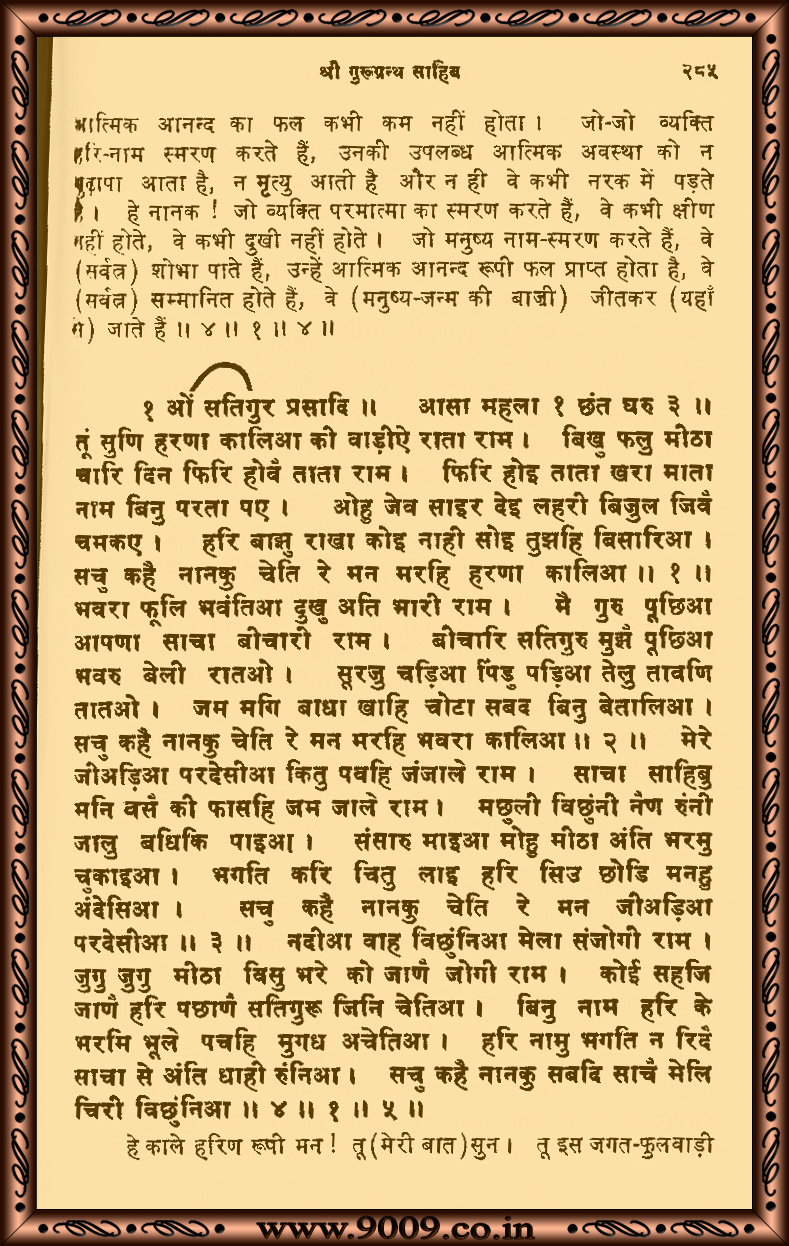 श्री गुरूग्रन्थ साहिब २८५
आत्मिक आनन्द का फल कभी कम नहीं होता। जो-जो व्यक्ति
हरि-नाम स्मरण करते हैं, उनकी उपलब्ध आत्मिक अवस्था को न
बुढ़ापा आता है, न मृत्यु आती है और न ही वे कभी नरक में पड़ते
हैं। हे नानक ! जो व्यक्ति परमात्मा का स्मरण करते हैं, वे कभी क्षीण
नहीं होते, वे कभी दुखी नहीं होते। जो मनुष्य नाम-स्मरण करते हैं, वे
(सर्वत्र) शोभा पाते हैं, उन्हें आत्मिक आनन्द रूपी फल प्राप्त होता है, वे
(सर्वत्र) सम्मानित होते हैं, वे (मनुष्य-जन्म की बाज़ी) जीतकर (यहाँ
से) जाते हैं ॥ ४ ॥ १ ॥ ४ ॥
१ ओं सतिगुर प्रसादि ॥ आसा महला १ छंत घरु ३ ॥
तूं सुणि हरणा कालिआ की वाड़ीऐ राता राम। बिखु फलु मीठा
चारि दिन फिरि होवै ताता राम। फिरि होइ ताता खरा माता
नाम बिनु परता पए। ओहु जेव साइर देइ लहरी बिजुल जिवै
चमकए। हरि बाझु राखा कोइ नाही सोइ तुझहि बिसारिआ।
सचु कहै नानकु चेति रे मन मरहि हरणा कालिआ ॥ १ ॥
भवरा फूलि भवंतिआ दुखु अति भारी राम। मै गुरु पूछिआ
आपणा साचा बीचारी राम। बीचारि सतिगुरु मुझै पूछिआ
भवरु बेली रातओ। सूरजु चड़िआ पिंडु पड़िआ तेलु तावणि
तातओ। जम मगि बाधा खाहि चोटा सबद बिनु बेतालिआ।
सचु कहै नानकु चेति रे मन मरहि भवरा कालिआ ॥ २ ॥ मेरे
जीअड़िआ परदेसीआ कितु पवहि जंजाले राम। साचा साहिबु
मनि वसै की फासहि जम जाले राम। मछुली विछुंनी नैण रुंनी
जालु बधिकि पाइआ। संसारु माइआ मोहु मीठा अंति भरमु
चुकाइआ। भगति करि चितु लाइ हरि सिउ छोडि मनहु
अंदेसिआ। सचु कहै नानकु चेति रे मन जीअड़िआ
परदेसीआ ॥ ३ ॥ नदीआ वाह विछुंनिआ मेला संजोगी राम।
जुगु जुगु मीठा विसु भरे को जाणै जोगी राम। कोई सहजि
जाणै हरि पछाणै सतिगुरू जिनि चेतिआ। बिनु नाम हरि के
भरमि भूले पचहि मुगध अचेतिआ। हरि नामु भगति न रिदै
साचा से अंति धाही रुंनिआ। सचु कहै नानकु सबदि साचै मेलि
चिरी विछुंनिआ ॥ ४ ॥ १ ॥ ५ ॥
हे काले हरिण रूपी मन ! तू (मेरी बात) सुन। तू इस जगत-फुलवाड़ी
www.9009.co.in